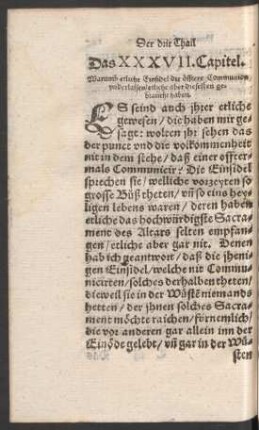 Der drit Thail
Das XXXVII. Capitel.
Warumb etliche Einsidel die öfftere Communion
vnderlassen / etliche aber dieselben ge-
braucht haben.
ES seind auch jhrer etliche
gewesen / die haben mir ge-
sagt: wolten jhr sehen das
der punct vnd die volkommenheit
nit in dem stehe / daß einer offter-
mals Communicir: Die Einsidel
sprechen sie / welliche vorzeyten so
grosse Büß theten / vñ so eins hey-
ligen lebens waren / deren haben
etliche das hochwürdigste Sacra-
ment des Altars selten empfan-
gen / etliche aber gar nit. Denen
hab ich geantwort / daß die jheni-
gen Einsidel / welche nit Commu-
nicierten / solches derhalben theten /
dieweil sie in der Wüstẽ niemands
hetten / der jhnen solches Sacra-
ment möchte raichen / fürnemlich /
die vor anderen gar allein inn der
Einöde gelebt / vñ gar in der Wü-
sten